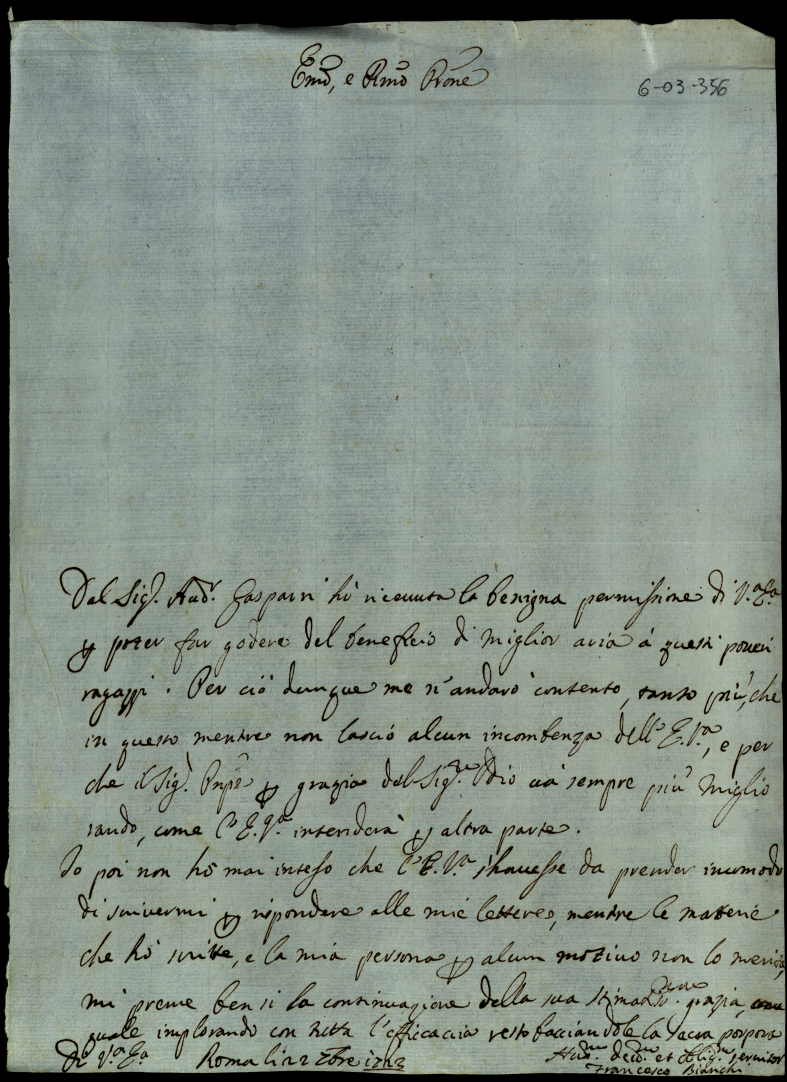 Emo, e Rmo Prone
6-03-356
Dal Sigr. Audr. Gasparri hò riceuuta la benigna permissione di V.a E.a
p poter far godere del beneficio di miglior aria à questi poueri
ragazzi. Per ciò dunque me n'andarò contento, tanto più, che
in questo mentre non lascio alcun incombenza dell'E.V.a, e per
che il Sigr. Pnpe p grazia del Sigre Iddio uà sempre più miglio
rando, come l'E.V.a intenderà p altra parte.
Io poi non hò mai inteso che l'E.V.a s'hauesse da prender incomodo
di scriuermi p rispondere alle mie lettere, mentre le materie
che hò scritte, e la mia persona p alcun motiuo non lo merita,
mi preme bensi la continuazione della sua stimatma grazia,
quale implorando con tutta l'efficaccia resto bacciandole la sacra porpora
Di V.a E.a Roma li 22 Xbre
Humo. deuo. et oblig.mo seruitor
Francesco Bianchi